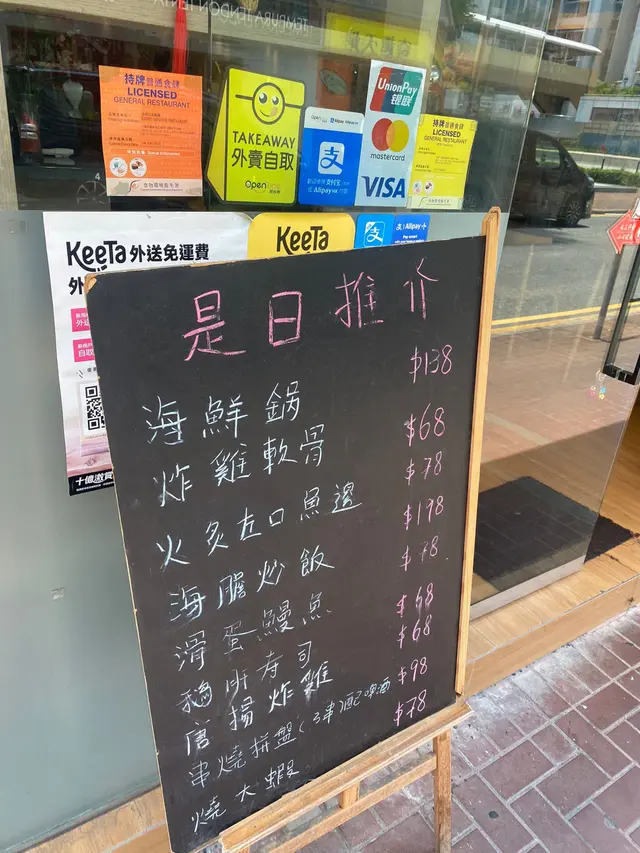 TEMPURA TENDON TENYA
持牌普通食肆
LICENSED
GENERAL RESTAURANT
TAKEAWAY
外賣自取
UnionPay
银联
mastercard
VISA
持牌普通食肆
LICENSED
GENERAL RESTAURANT
KeeTa 外送免運費
KeeTa
Alipay+
是日推介
海鮮鍋 $138
炸雞軟骨 $68
火炙左口魚邊 $78
海膽炒飯 $198
滑蛋鰻魚 $78
鵝肝寿司 $68
唐揚炸雞 $68
串燒拼盤(3串)配啤酒 $98
燒大蝦 $78